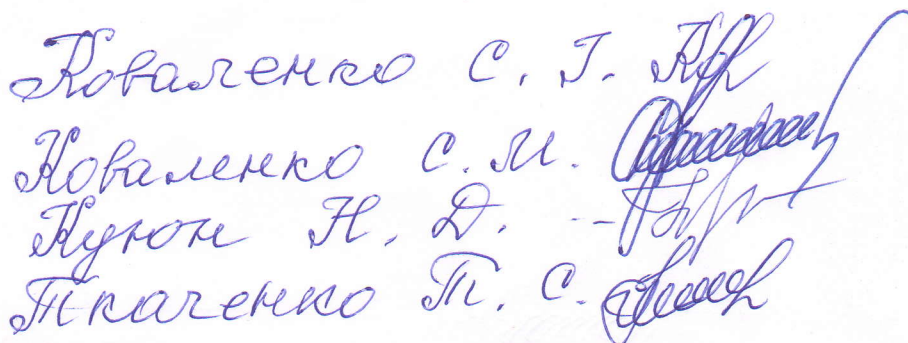 Коваленко С. Г.
Коваленко С. М.
Куюн Н. Д.
Ткаченко Т. С.